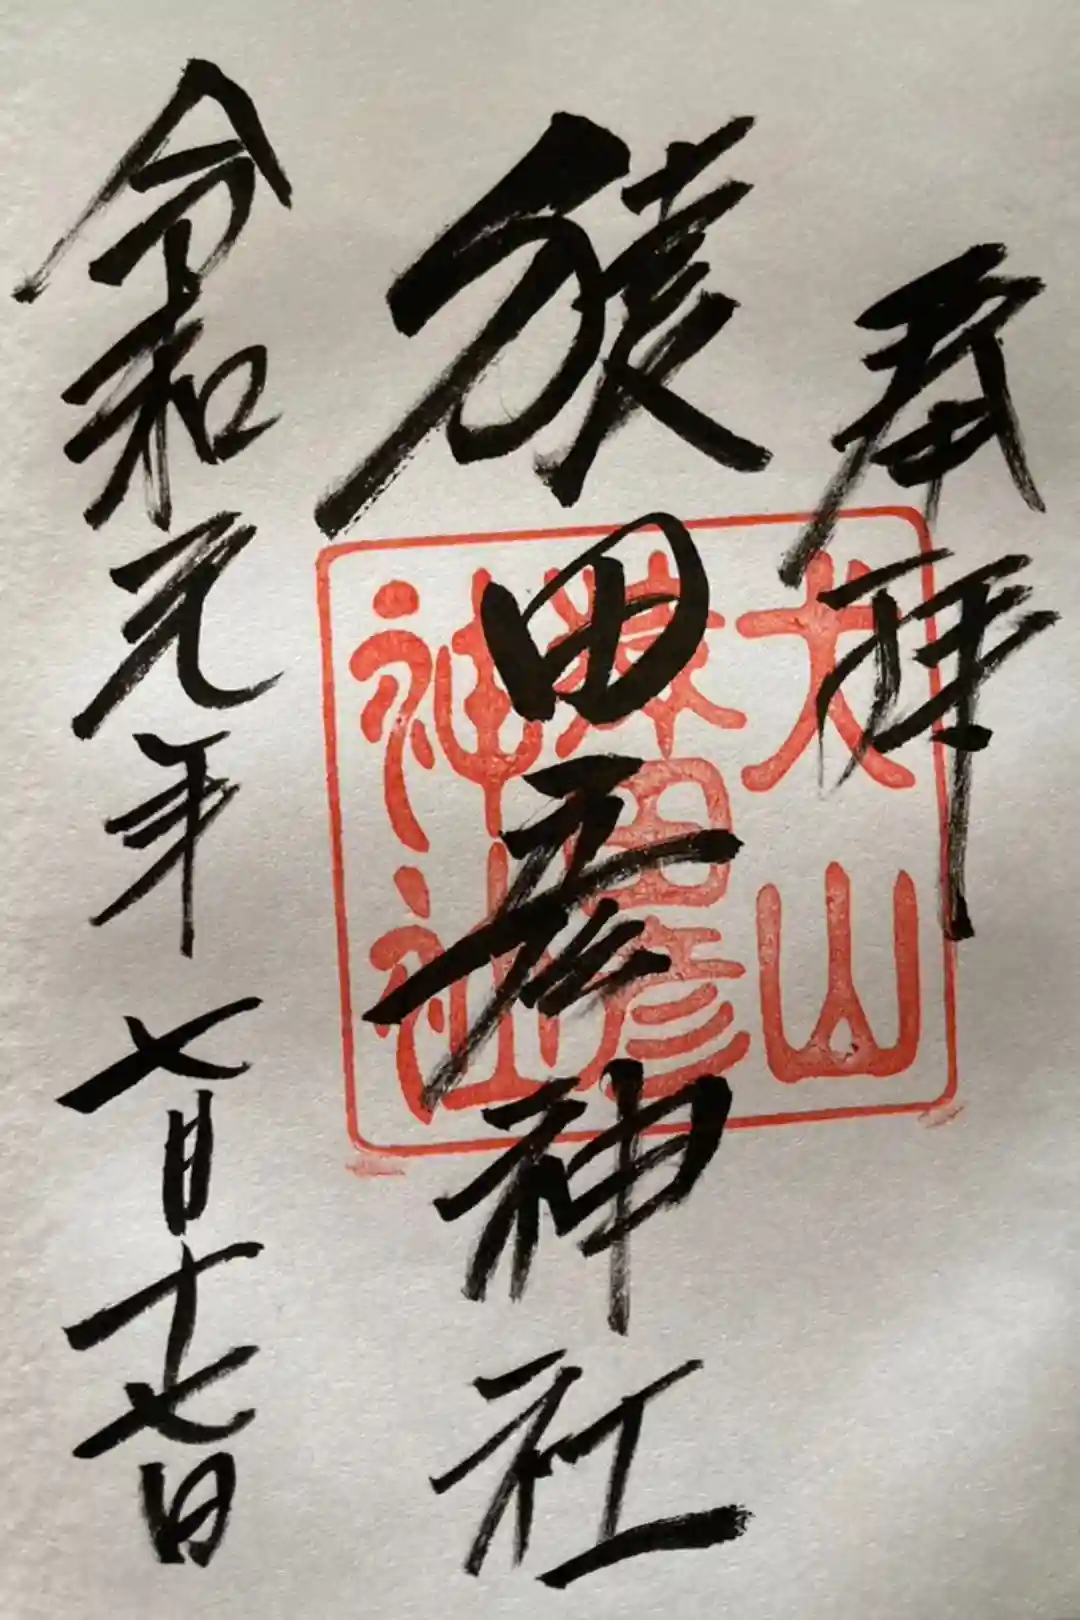 奉拝
猿田彦神社
令和元年七月十七日
犬山
猿田彦
神社